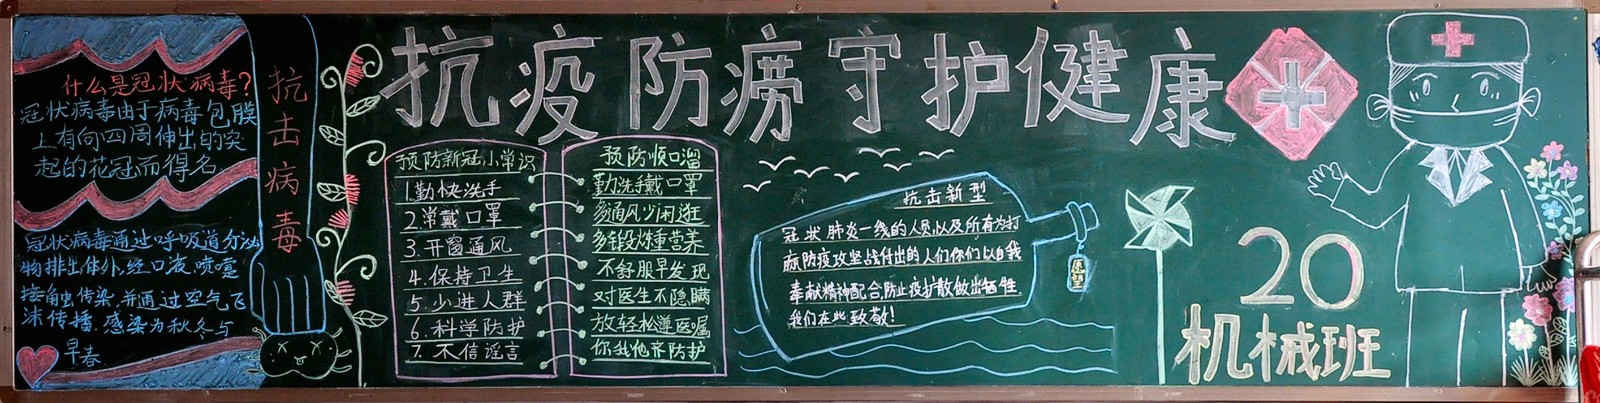 抗疫防痨守护健康
什么是冠状病毒?
冠状病毒由于病毒包膜
上有向四周伸出的突
起的花冠而得名
冠状病毒通过呼吸道分泌
物排出体外,经口液,喷嚏
接触传染,并通过空气飞
沫传播,感染为秋冬与
早春
抗击病毒
预防新冠小常识
1.勤快洗手
2.常戴口罩
3.开窗通风
4.保持卫生
5.少进人群
6.科学防护
7.不信谣言
预防顺口溜
勤洗手戴口罩
多通风少闲逛
多锻炼重营养
不舒服早发现
对医生不隐瞒
放轻松遵医嘱
你我他齐防护
抗击新型
冠状肺炎一线的人员,以及所有为打
赢防疫攻坚战付出的人们你们以自我
奉献精神配合防止疫扩散做出牺牲
我们在此致敬!
愿望
20
机械班